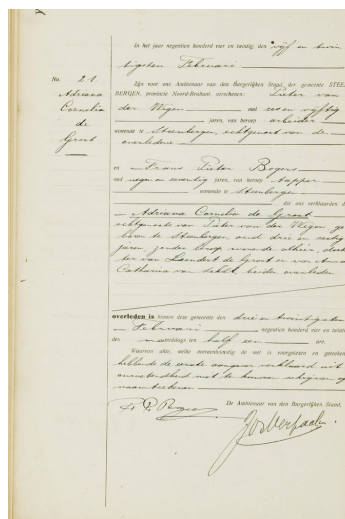 In het jaar negentien honderd vier en twintig, den vijf en twin
tigsten Februari
No. 21
Adriana
Cornelia
de
Groot
Zijn voor ons Ambtenaar van den Burgerlijken Stand, der gemeente STEE
BERGEN, provincie Noord-Brabant, verschenen: Pieter van
der Wegen oud zes en vijftig
jaren, van beroep arbeider
wonende te Steenbergen, echtgenoot van de
overledene
en Frans Pieter Bogers
oud negen en twintig jaren, van beroep tapper
wonende te Steenbergen
die ons verklaarden d
Adriana Cornelia de Groot
echtgenoote van Pieter van der Wegen ge
boren te Steenbergen, oud drie en zestig
jaren zonder beroep wonende alhier, doch
ter van Leendert de Groot en van
Catharina van beiden overleden
overleden is binnen deze gemeente den drie en twintigsten
Februari negentien honderd vier en twinti
des namiddags ten half een ure.
Waarvan akte, welke overeenkomstig de wet is voorgelezen en geteeken
hebbende de eerste aangever verklaard uit
onvastendheid niet te kunnen schrijven of
naamteekenen
De Ambtenaar van den Burgerlijken Stand,
F. P. Bogers